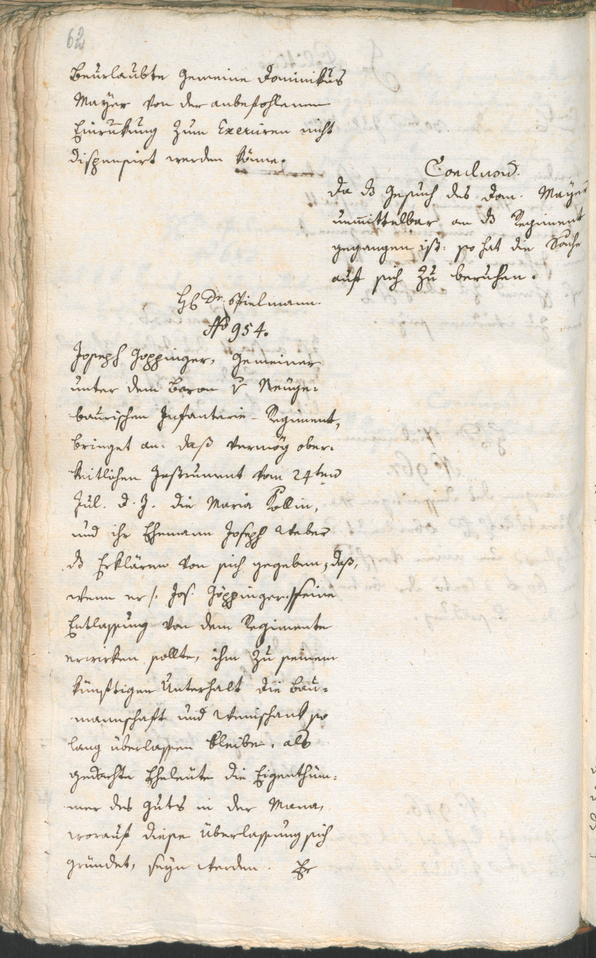 62
Beurlaubte Gemeine Dominikus
Mayer von der anbefohlenen
Einrückung zum Exerciren nicht
dispensirt werden könne.
Conclusum.
Da ds Gesuch des Dom. Mayer
unmittelbar an ds Regiment
gegangen ist: so hat die Sache
auf sich zu beruhen.
Spielmann.
No 954.
Joseph Göppinger, Gemeiner
unter dem Baron v Neuge-
baurischen Infanterie-Regiment,
bringet an: daß vermög ober-
keitlichen Instrument vom 24ten
Jul. d. J. die Maria Kollin,
und ihr Ehemann Joseph Weber
ds Erklären von sich gegeben, daß,
wenn er /: Jos. Göppinger :/ seine
Entlassung von dem Regimente
erwirken sollte, ihm zu seinem
künftigen Unterhalt die Bau-
mannschaft und Weinschank so
lang überlassen bleibe, als
gedachte Eheleute die Eigenthüm-
mer des Guts in der
worauf diese Überlassung sich
gründet, seyn werden. Er